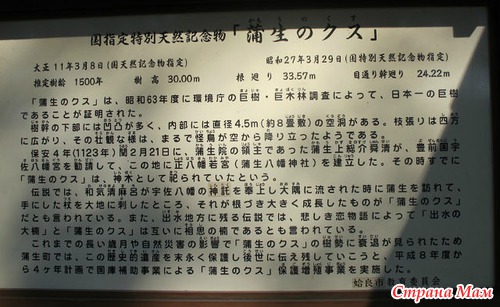 国指定特別天然記念物「蒲生のクス」
大正11年3月8日(国天然記念物指定) 昭和27年3月29日(国特別天然記念物指定)
推定樹齢 1500年 樹高 30.00m 根廻り 33.57m 目通り幹廻り 24.22m
「蒲生のクス」は、昭和63年度に環境庁の巨樹・巨木林調査によって、日本一の巨樹
であることが証明された。
樹幹の下部には凹凸が多く、内部には直径4.5m(約8畳敷)の空洞がある。枝張りは四方
に広がり、その壮観な様は、まるで怪鳥が空から降り立ったようである。
保安4年(1123年)閏2月21日に、蒲生院の領主であった蒲生上総介舜清が、豊前国宇
佐八幡宮を勧請して、この地に正八幡若宮(蒲生八幡神社)を建立した。その時すでに
「蒲生のクス」は、神木として祀られていたという。
伝説では、和気清麻呂が宇佐八幡の神託を奏上し大隅に流された時に蒲生を訪れて、
手にした杖を大地に刺したところ、それが根づき大きく成長したものが「蒲生のクス」
だとも言われている。また、出水地方に残る伝説では、悲しき恋物語によって「出水の
大楠」と「蒲生のクス」は互いに相思の楠であるとも言われている。
これまでの長い歳月や自然災害の影響で「蒲生のクス」の樹勢に衰退が見られたため
蒲生町では、この歴史的遺産を末永く保護し後世に伝え残していこうと、平成8年度か
ら4ヶ年計画で国庫補助事業による「蒲生のクス」保護増殖事業を実施した。
姶良市教育委員会
Страна Мам